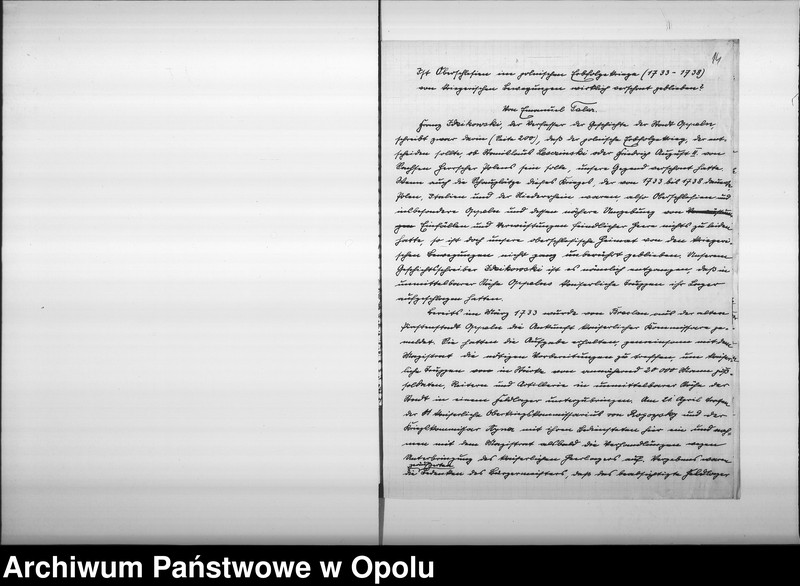 14
Ist Oberschlesien im polnischen Erbfolgekriege (1733-1738)
von kriegerischen Bewegungen wirklich verschont geblieben?
Von Emanuel
Franz Idzikowski, der Verfasser der Geschichte der Stadt Oppeln,
schreibt zwar darin (Seite 200), daß der polnische Erbfolgekrieg, der ent-
scheiden sollte, ob Stanislaus Lescinski oder Friedrich August II von
Sachsen Herrscher Polens sein solle, unsere Gegend verschont hatte.
Wenn auch die Schauplätze dieses Krieges, der von 1733 bis 1738 dauerte,
Polen, Italien und der Niederrhein waren, also Oberschlesien und
insbesondere Oppeln und dessen nähere Umgebung von
Einfällen und Verwüstungen feindlicher Heere nichts zu leiden
hatte, so ist doch unsere oberschlesische Heimat von den kriegeri-
schen Bewegungen nicht ganz unberührt geblieben. Unserem
Geschichtsschreiber Idzikowski ist es nämlich entgangen, daß in
unmittelbarer Nähe Oppelns kaiserliche Truppen ihr Lager
aufgeschlagen hatten.
Bereits im März 1733 wurde von Breslau aus der alten
Piastenstadt Oppeln die Ankunft kaiserlicher Kommissare ge-
meldet. Sie hatten die Aufgabe erhalten, gemeinsam mit dem
Magistrat die nötigen Vorbereitungen zu treffen, um kaiser-
liche Truppen in Stärke von annähernd 20 000 Mann Fuß-
soldaten, Reitern und Artillerie in unmittelbarer Nähe der
Stadt in einem Feldlager unterzubringen. Am 21 April trafen
der kaiserliche Oberkriegskommissariat von und der
Kriegskommissar mit ihren Bediensteten hier ein und nah-
men mit dem Magistrat alsbald die Verhandlungen wegen
Unterbringung des kaiserlichen Heerlagers auf. Vergebens waren
die geäußerten Bedenken des Bürgermeisters, daß das beabsichtigte Feldlager
Archiwum Państwowe w Opolu